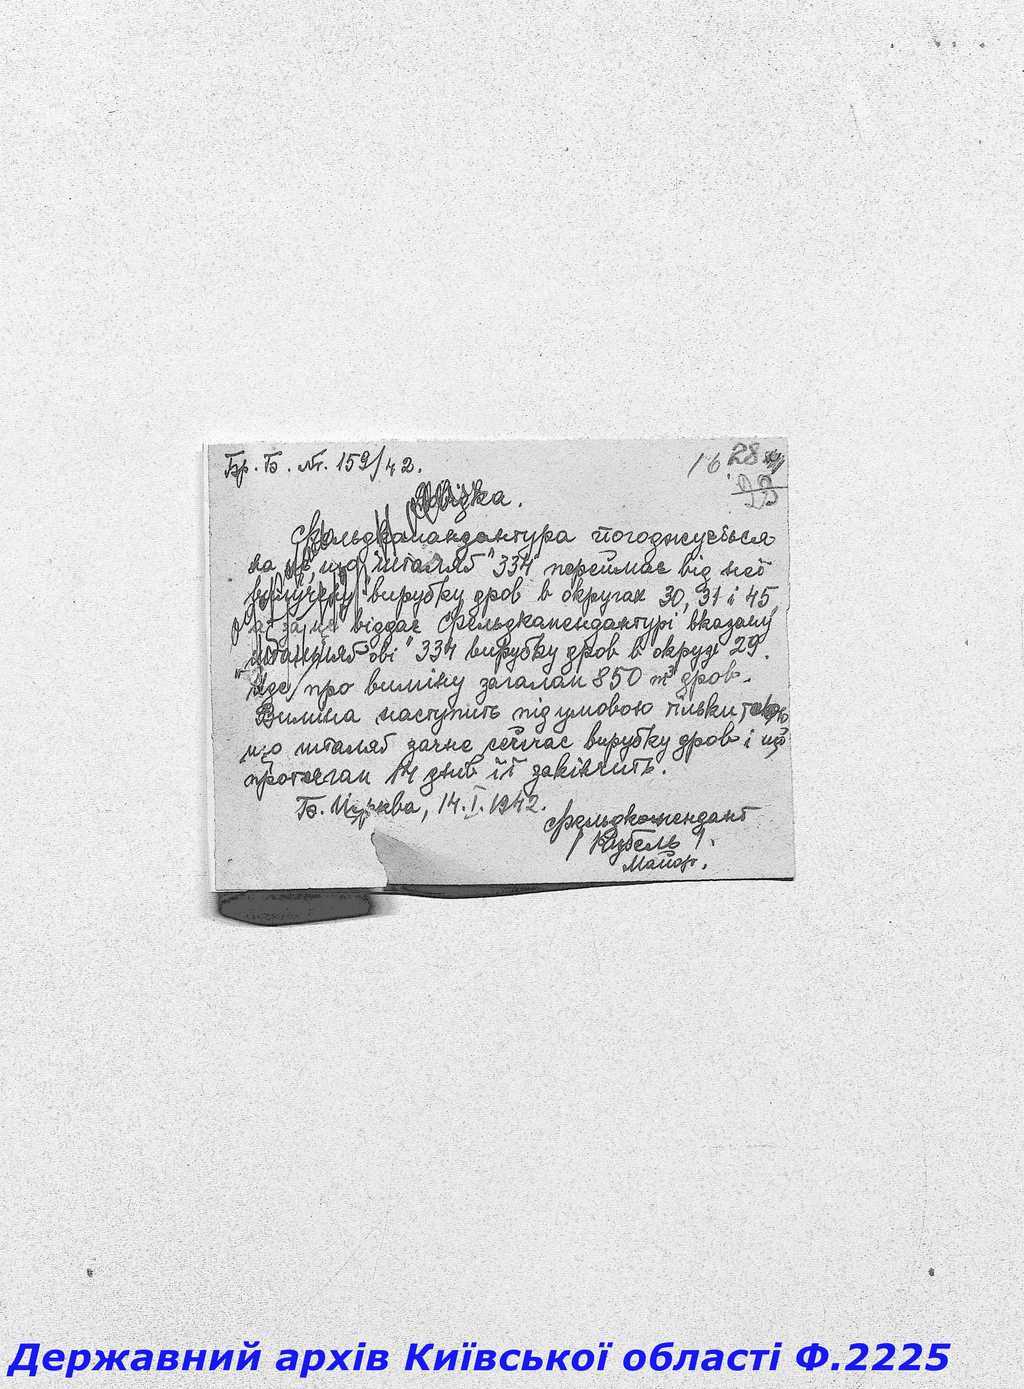 Бр. Б. №. 159/42.
16 28
33
Довідка.
Фельдкомандантура погоджується
на те що "шталяг" 334 переймає від неї
вирубку дров в округах 30, 31 і 45
а за це віддає Фельдкомендантурі вказану
"шталяг'ові" 334 вирубку дров в окрузі 29.
Йде про виміну загалом 850 m³ дров.
Виміна наступить під умовою тільки,
що шталяг зачне сейчас вирубку дров і що
протягом 14 днів її закінчить.
Б. Церква, 14. I. 1942.
Фельдкомендант
/ Кизбель /.
Майор.
Державний архів Київської області Ф.2225